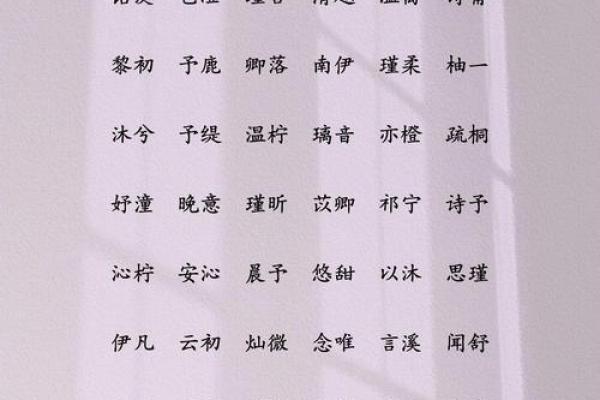 黎初 予鹿 卿落 南伊 瑾柔 柚一
沐兮 予缇 温柠 璃音 亦橙 疏桐
妤潼 晚意 瑾昕 苡卿 祁宁 诗予
沁柠 安沁 晨予 悠甜 以沐 思瑾
伊凡 云初 灿微 念唯 言溪 闻舒